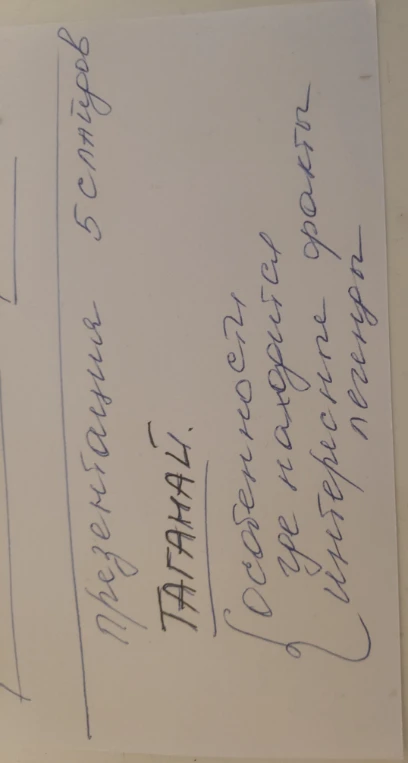 презентация 5 слайдов
ТАГАНАЙ.
особенности
где находится
интересные факты
легенды